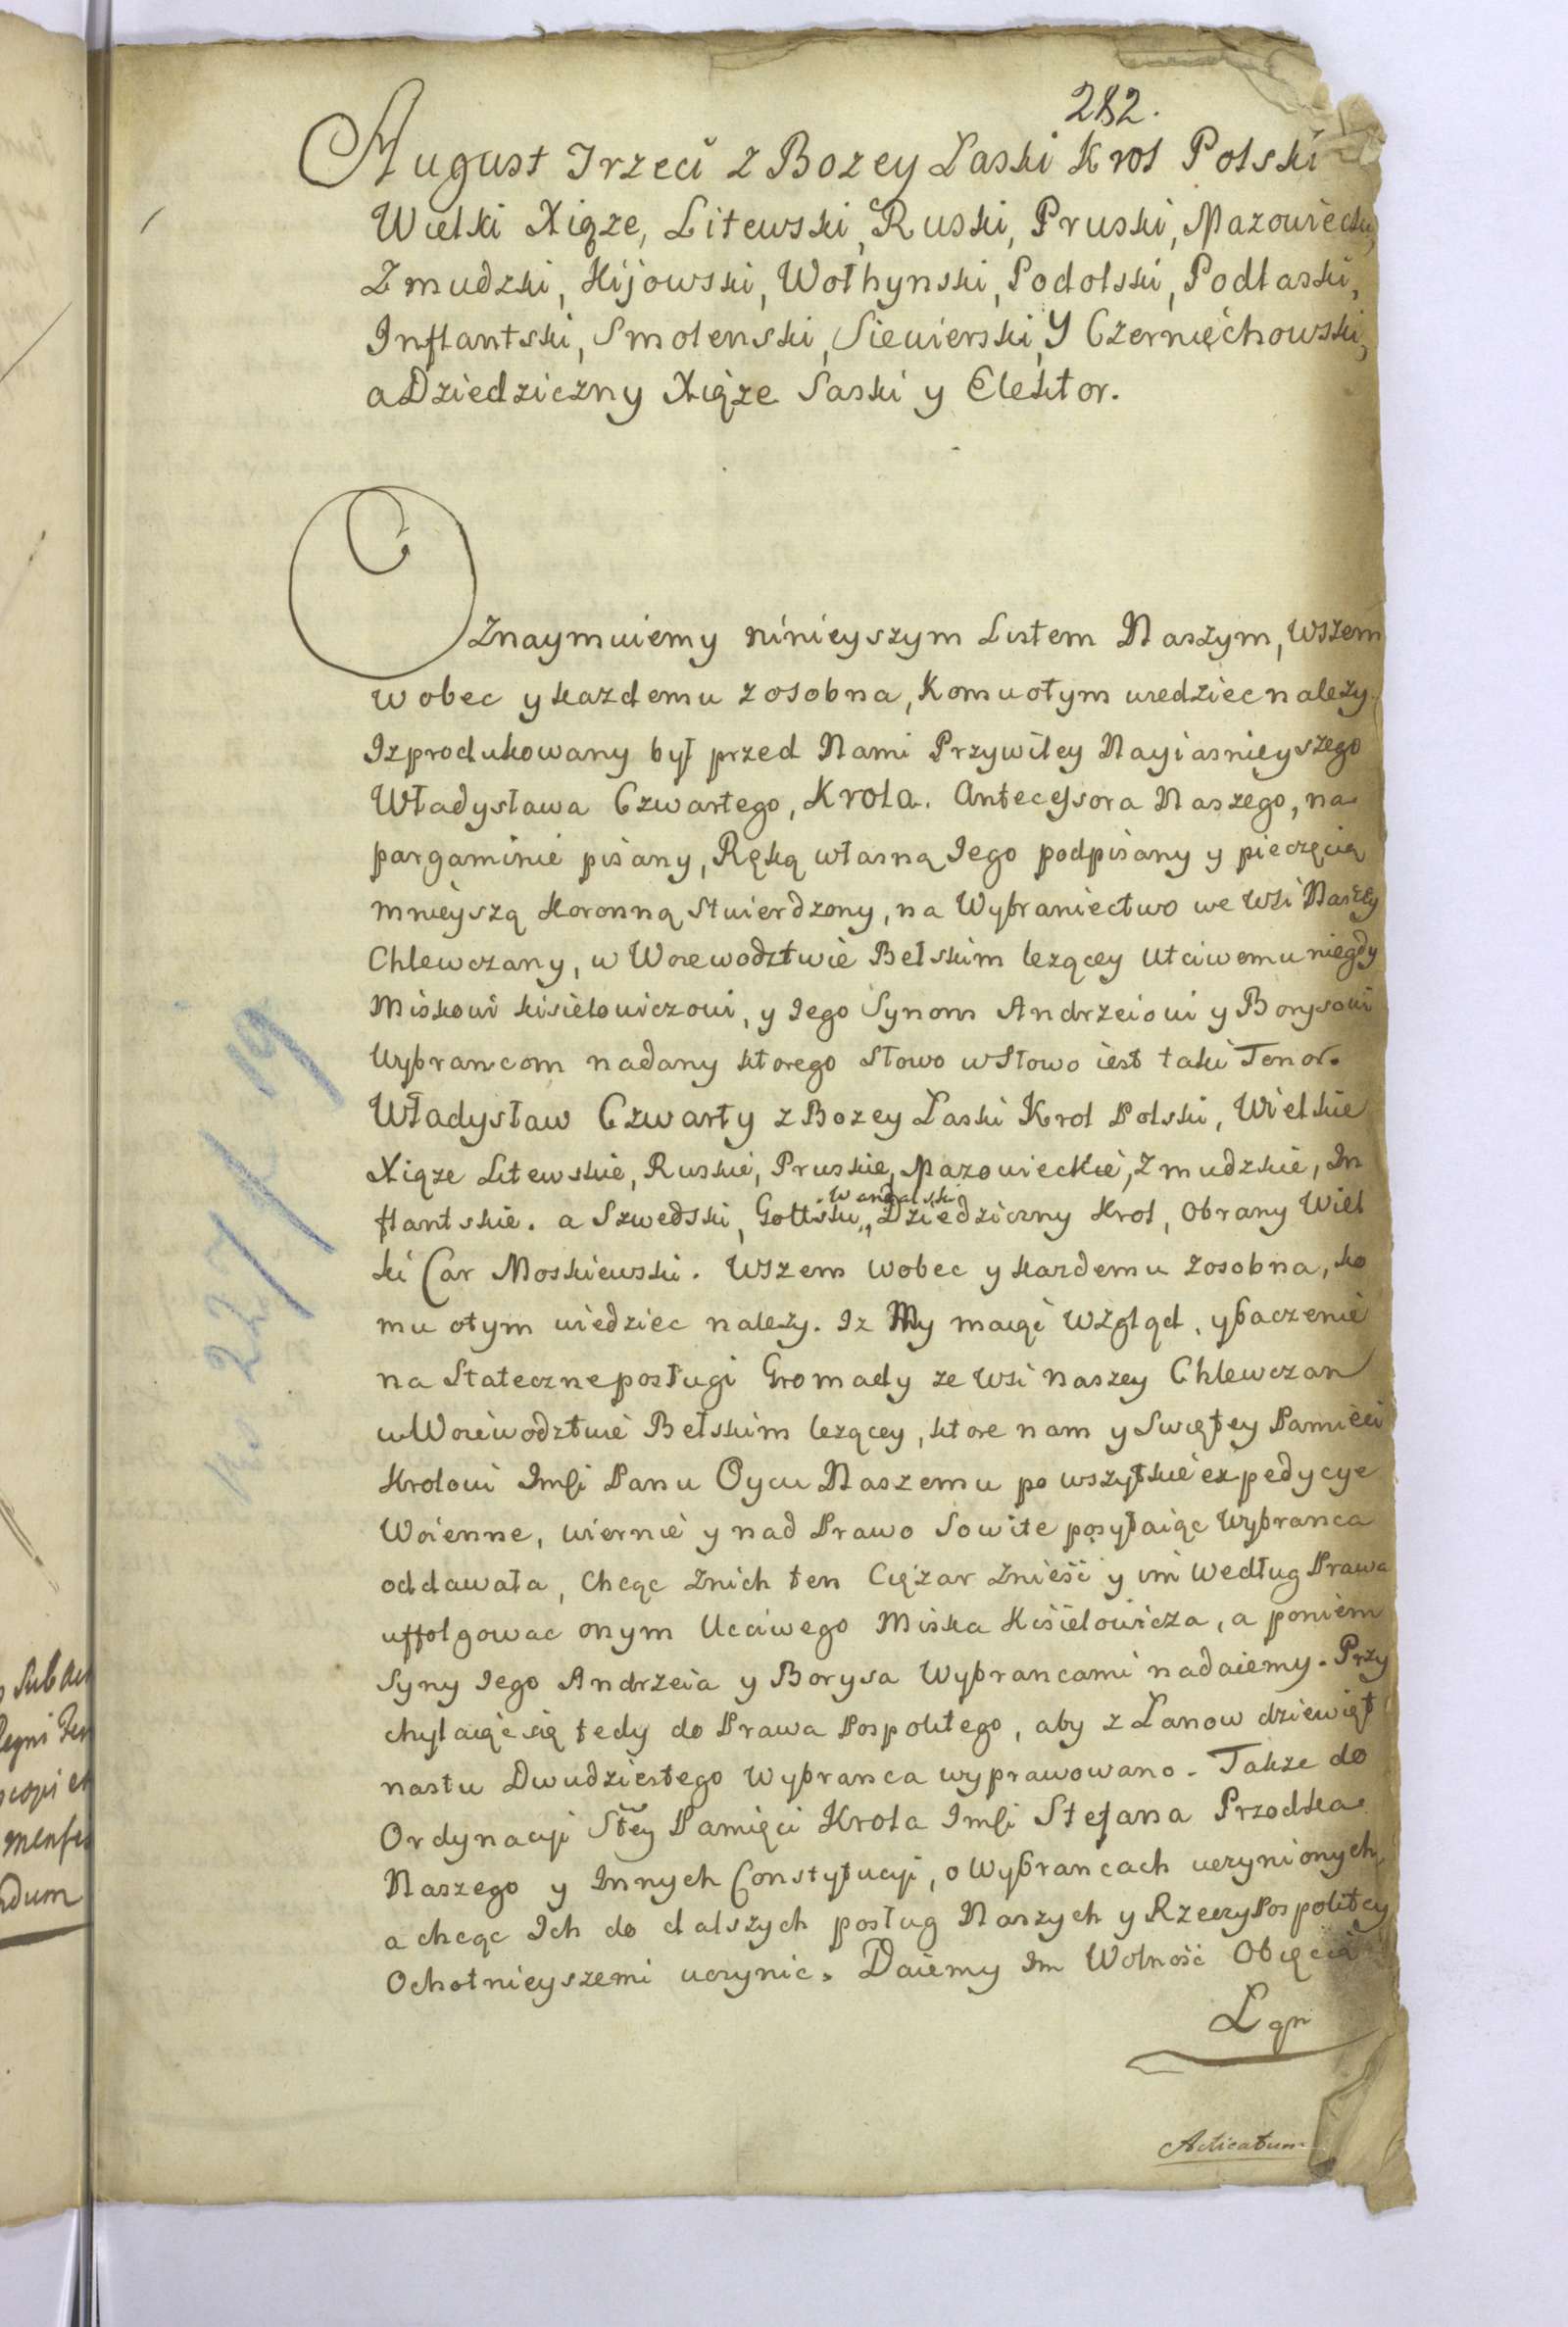 282.
August Trzeci z Bozey Łaski Krol Polski
Wielki Xiąze, Litewski, Ruski, Pruski, Mazowiecki,
Zmudzki, Kijowski, Wołhynski, Podolski, Podlaski,
Inflantski, Smolenski, Siewierski, Y Czernięchowski,
a Dziedziczny Xiąze Saski y Elektor.
Oznaymuiemy ninieyszym Listem Naszym, wszem
wobec y kazdemu z osobna, Komu otym wiedziec nalezy.
Iz produkowany był przed Nami Przywiley Nayiasnieyszego
Władysława Czwartego, Krola. Antecessora Naszego, na
pargaminie pisany, Ręką własną Iego podpisany y pieczęcią
mnieyszą Koronną stwierdzony, na Wybraniectwo we Wsi Naszey
Chlewczany, w Woiewodztwie Bełskim lezącey Utciwemu niegdy
Miskowi kisielowiczowi, y Iego Synom Andrzeiowi y Borysowi
Wybrancom nadany ktorego słowo w słowo iest taki Tenor.
Władysław Czwarty z Bozey Łaski Krol Polski, Wielkie
Xiąze Litewskie, Ruskie, Pruskie, Mazowieckie, Zmudzkie, In
Wandalski
flantskie. a Szwedski, Gottski,, Dziedziczny Krol, Obrany Wiel
ki Car Moskiewski. Wszem wobec y kazdemu zosobna, ko
mu otym wiedziec nalezy. Iz My maiąc Wzgląd, y baczenie
na Stateczne posługi Gromady ze wsi naszey Chlewczan
w Woiewodztwie Bełskim lezącey, ktore nam y Swiętey Pamieci
Krolowi Imśi Panu Oycu Naszemu po wszytkie expedycye
Woienne, wiernie y nad Prawo Sowite posyłaiąc Wybranca
oddawała, chcąc z nich ten Cięzar znieść y im Według Prawa
uffolgowac onym Ucciwego Miska Kisielowicza, a poniem
Syny Iego Andrzeia y Borysa Wybrancami nadaiemy. Przy
chylaiąc się tedy do Prawa Pospolitego, aby z Łanow dziewięt
nastu Dwudziestego Wybranca wyprawowano. Takze do
Ordynacyi Stey Pamięci Krola Imśi Stefana Przodka
Naszego y Innych Constytucyi, o Wybrancach uczynionych,
a chcąc Ich do dalszych posług Naszych y Rzeczy Pospolitey
Ochotnieyszemi uczynic. Daiemy Im Wolność Obięcia
Łąn
Acticatum